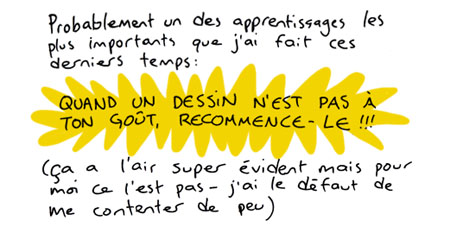 Probablement un des apprentissages les
plus importants que j'ai fait ces
derniers temps:
QUAND UN DESSIN N'EST PAS À
TON GOÛT, RECOMMENCE-LE!!!
(ça a l'air super évident mais pour
moi ce l'est pas - j'ai le défaut de
me contenter de peu)